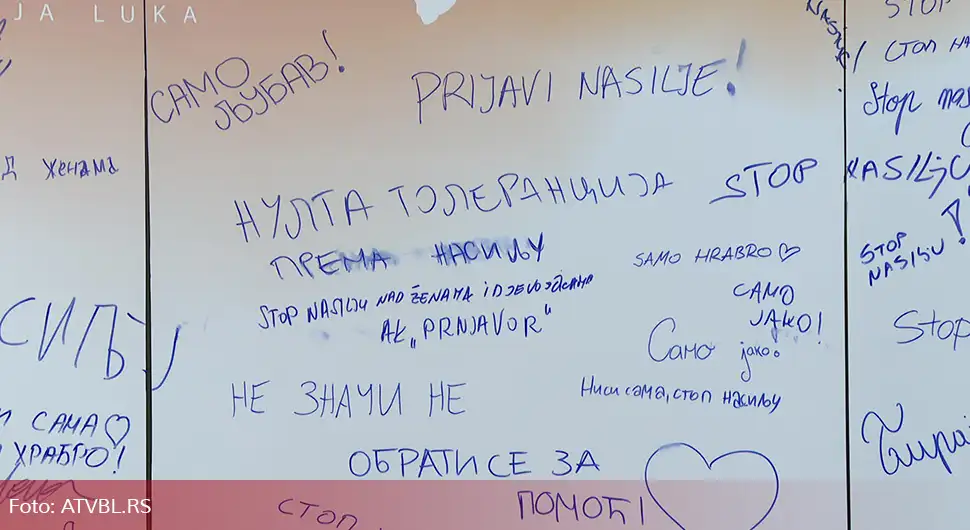 JA LUKA
Д женама
СИЉУ
САМА
ХРАБРО!
САМО
ЉУБАВ!
PRIJAVI NASILJE!
НУЛТА ТОЛЕРАНЦИЈА
ПРЕМА НАСИЉУ
STOP
STOP NASILJU NAD ŽENAMA i DJEVOJČICAMA
AK „PRNJAVOR"
SAMO HRABRO
САМО
ЈАКО!
Само јако.
Ниси сама, стоп насиљу
НЕ ЗНАЧИ НЕ
ОБРАТИ СЕ ЗА
ПОМОЋ!
СТОП
STOP
СТОП НА
Stop nas
NASILjU
STOP
NASILjU
!
Stop
Foto: ATVBL.RS